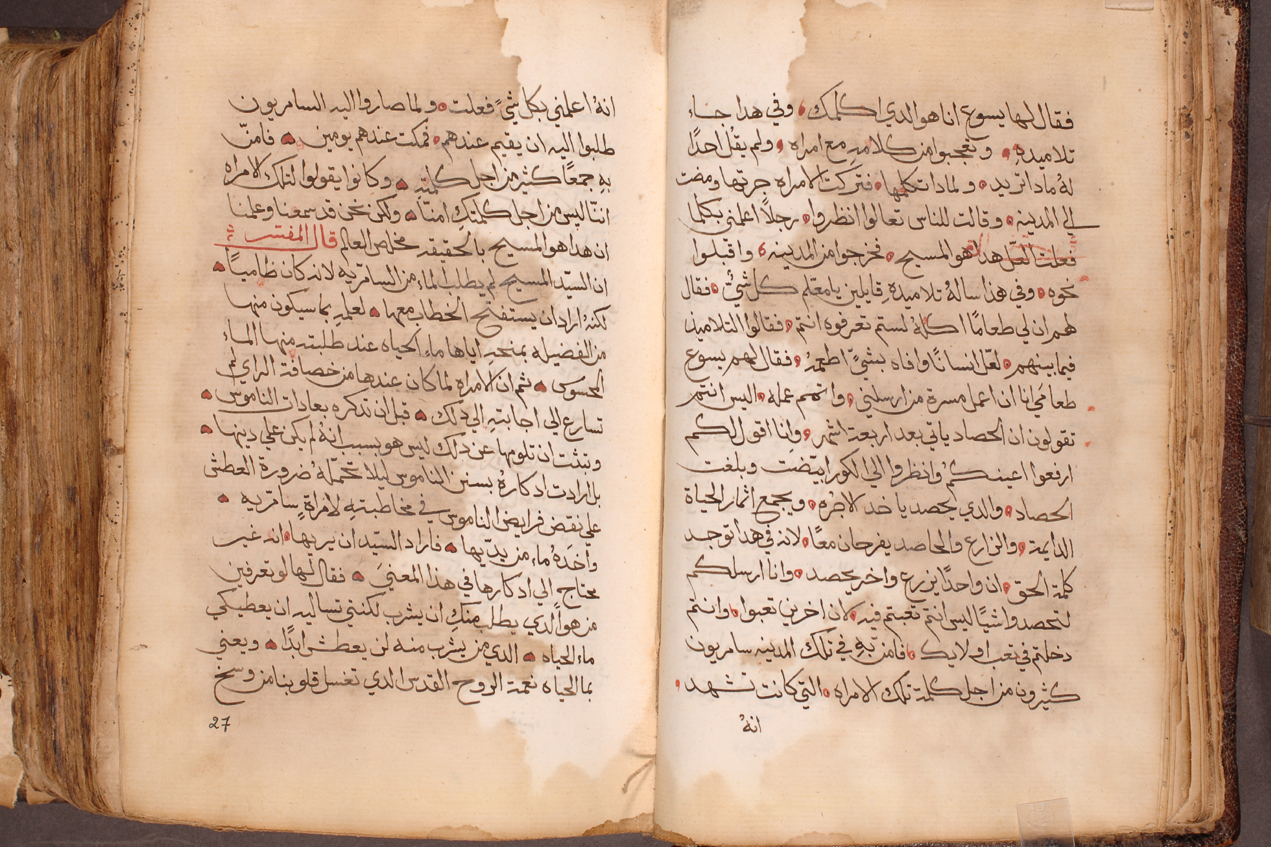 فقال لها يسوع انا هو الدي اكلمك، وفي هدا جا
تلاميده، وتعجبوا من كلامه مع امراه، ولم يقل احدًا
لهُ مادا تريد، ولمادا تكلمها، فتركت الامراه جرتها ومضت
الي المدينه، وقالت للناس تعالوا انظروا، رجلاً اعلمني بكلما
فعلت لعل هدا هو المسيح، فخرجوا من المدينه، واقبلوا
نحوه، وفي هدا سالهُ تلاميده قايلين يامعلم كل شيُ، فقال
لهم ان لي طعامًا اكله لستم تعرفوه انتم، فقالوا التلاميد
فيما بينهم، لعل انسانًا وافاه بشيً اطعمهُ، فقال لهم يسوع
طعامي انا ان اعمل مسرة من ارسلني، واتمم عمله، اليس انتم
تقولون ان الحصاد ياتي بعد اربعة اشهر، وانا اقول لكم
ارفعوا اعينكم وانظروا الي الكور ابيضت وبلغت
الحصاد، والدي يحصد ياخد الاجره، ويجمع اثمار الحياة
الدايمة، والزارع والحاصد يفرحان معًا، لانه في هدا توجد
كلمة الحق، ان واحدًا يزرع واخر يحصد، وانا ارسلكم
لتحصدوا شيًا ليس انتم تعبتم فيه، لان اخرين تعبوا، وانتم
دخلتم في تعب اولايك، فامن به في تلك المدينه سامريون
كثيرون من اجل كلمة تلك الامراه، التي كانت تشهد،
انهُ
انهُ اعلمني بكل شيً فعلت، ولما صاروا اليه السامريون
طلبوا اليه ان يقيم عندهم، فمكت عندهم يومين، فامن
به جمعًا كثير من اجل كلمته، وكانوا يقولوا لتلك الامراه
اننا ليس من اجل كلمتكِ امنا، ولكن نحن قد سمعنا وعلمنا
ان هدا هو المسيح بالحقيقه مخلص العالم قال المفسر
ان السيد المسيح لم يطلب الماء من السامريه لانه كان ظاميًا،
لكنهُ اراد ان يستفتح الخطاب معها، لعلمه بما سيكون منها
من الفضيله بمنحه اياها ماء الحياه عند طلبته منها الماء
الحسوس، ثم ان الامراه لما كان عندها من خصافة الراي لم
تسارع الي اجابته الي دلك، قبل ان تدكره بعادات الناموس،
وتثبت ان تلومها عن دلك ليس هو بسبب انهُ ابكن علي دينها،
بل ارادت ادكارهُ بسنن الناموس ليلا تحملهُ ضرورة العطش
علي نقض فرايض الناموس في مخاطبته لامراةٍ سامريه،
واخدهُ ماء من يديها، فاراد السيد ان يريها، انه غير
محتاج الي ادكارها في هدا المعني، فقال لها لو تعرفين
من هو الدي يطلب منكِ ان يشرب لكنتي تساليه ان يعطيكي
ماء الحياه، الدي من يشرب منه لن يعطش ابدًا، ويعني
بما الحياه نعمة الروح القدس الدي تغسل قلوبنا من وسخ
27